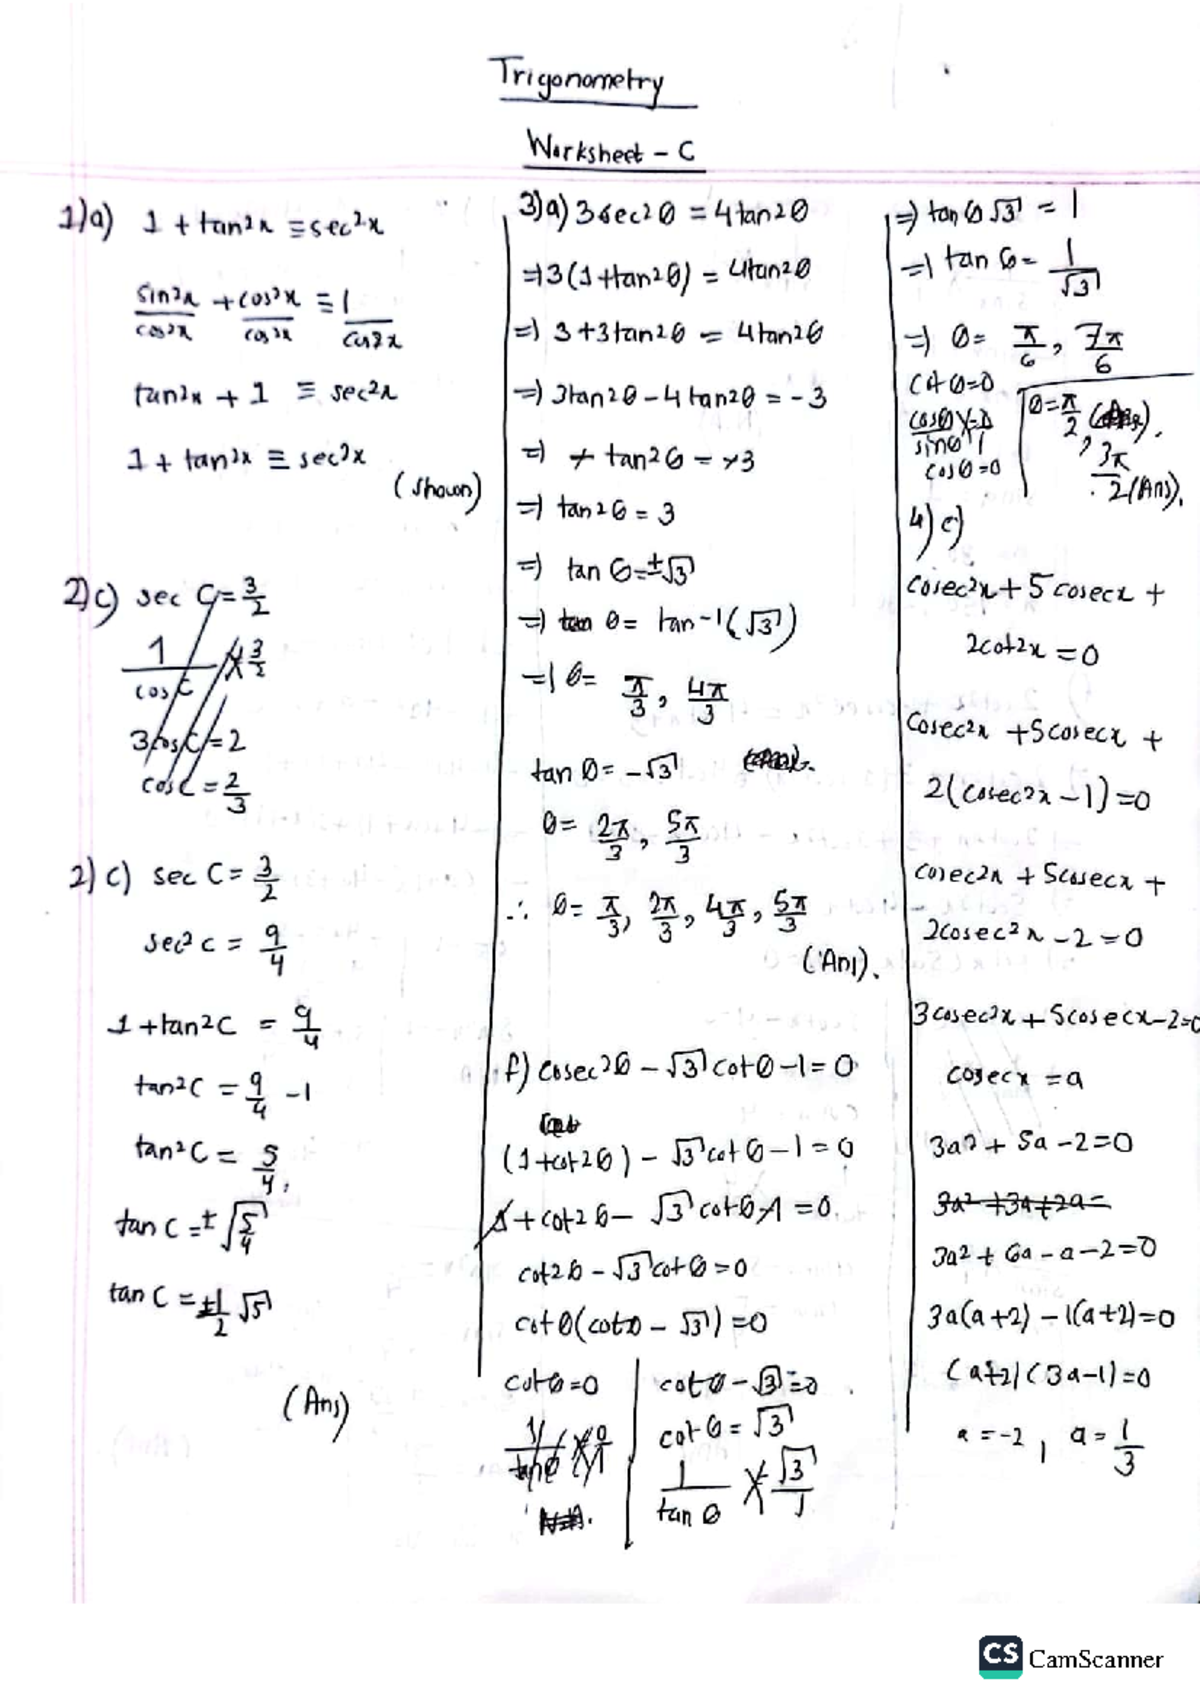 Trigonometry
Worksheet - C
1)a) 1 + tan²x ≡ sec²x
sin²x/cos²x + cos²x/cos²x ≡ 1/cos²x
tan²x + 1 ≡ sec²x
1 + tan²x ≡ sec²x
(shown)
2)c) sec C = 3/2
1/cos C = 3/2
3cos C = 2
cos C = 2/3
2) c) sec C = 3/2
sec² c = 9/4
1 + tan²C = 9/4
tan²C = 9/4 - 1
tan²C = 5/4,
tan C = ± √5/4
tan C = ±1/2 √5
(Ans)
3)a) 3sec²θ = 4tan²θ
=) 3(1+tan²θ) = 4tan²θ
=) 3+3tan²θ = 4tan²θ
=) 3tan²θ - 4tan²θ = -3
=) + tan²θ = +3
=) tan²θ = 3
=) tan θ = ±√3
=) θ = tan-1(√3)
=) θ = π/3, 4π/3
tan θ = -√3
θ = 2π/3, 5π/3
∴ θ = π/3, 2π/3, 4π/3, 5π/3
(Ans).
f) cosec²θ - √3 cotθ - 1 = 0
(1+cot²θ) - √3 cot θ - 1 = 0
1 + cot²θ - √3 cotθ - 1 = 0.
cot²θ - √3 cot θ = 0
cot θ(cotθ - √3) = 0
cotθ = 0
1/tanθ = 0/1
cotθ - √3 = 0
cot θ = √3
1/tan θ = √3/1
=) tan θ √3 = 1
=) tan θ = 1/√3
=) θ = π/6, 7π/6
cot θ = 0
cosθ/sinθ = 0/1
cos θ = 0
θ = π/2, 3π/2 (Ans).
4) e)
cosec²x + 5 cosecx +
2cot²x = 0
cosec²x + 5cosecx +
2(cosec²x - 1) = 0
cosec²x + 5cosecx +
2cosec²x - 2 = 0
3cosec²x + 5cosecx - 2 = 0
cosecx = a
3a² + 5a - 2 = 0
3a² + 3a + 2a =
3a² + 6a - a - 2 = 0
3a(a+2) - 1(a+2) = 0
(a+2)(3a-1) = 0
a = -2, a = 1/3
CS CamScanner